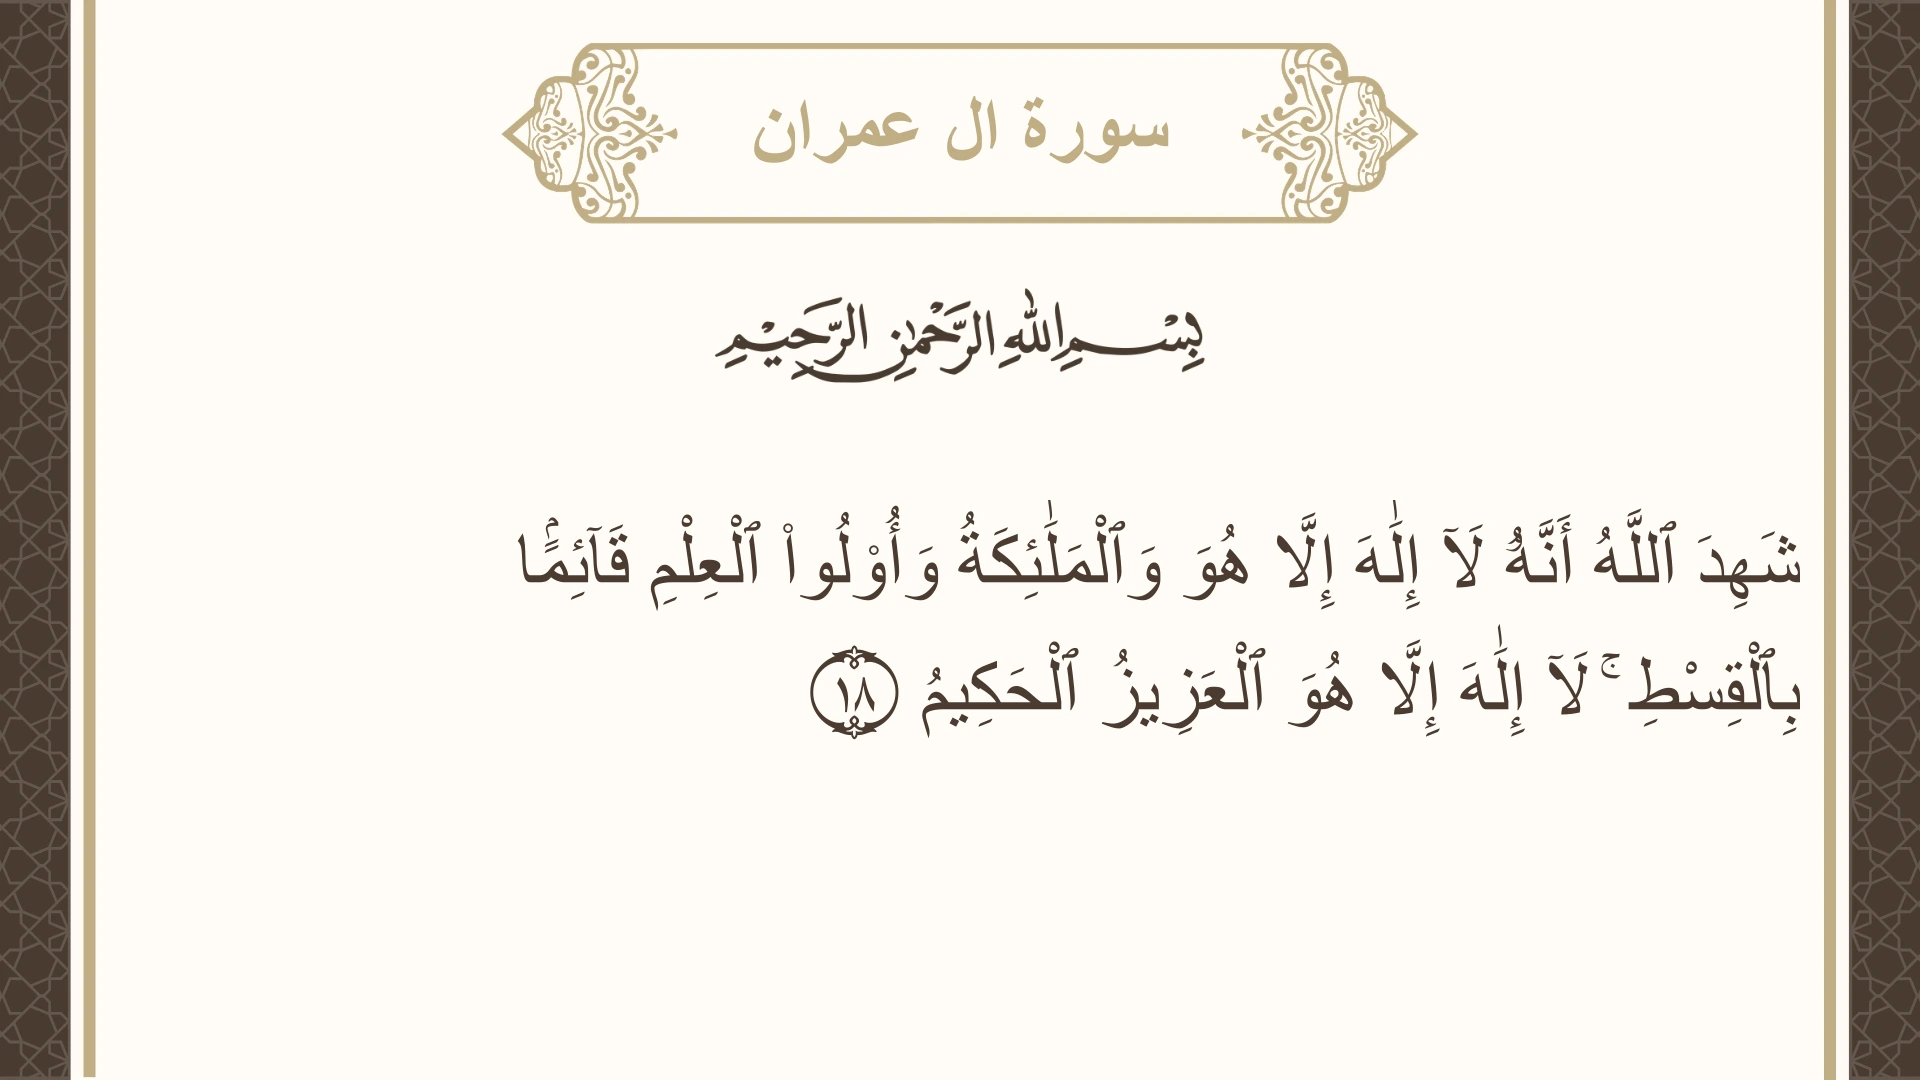 سورة ال عمران
بِسْمِ اللهِ الرَّحْمٰنِ الرَّحِيْمِ
شَهِدَ ٱللَّهُ أَنَّهُۥ لَآ إِلَٰهَ إِلَّا هُوَ وَٱلْمَلَٰٓئِكَةُ وَأُو۟لُوا۟ ٱلْعِلْمِ قَآئِمًۢا
بِٱلْقِسْطِ ۚ لَآ إِلَٰهَ إِلَّا هُوَ ٱلْعَزِيزُ ٱلْحَكِيمُ ١٨